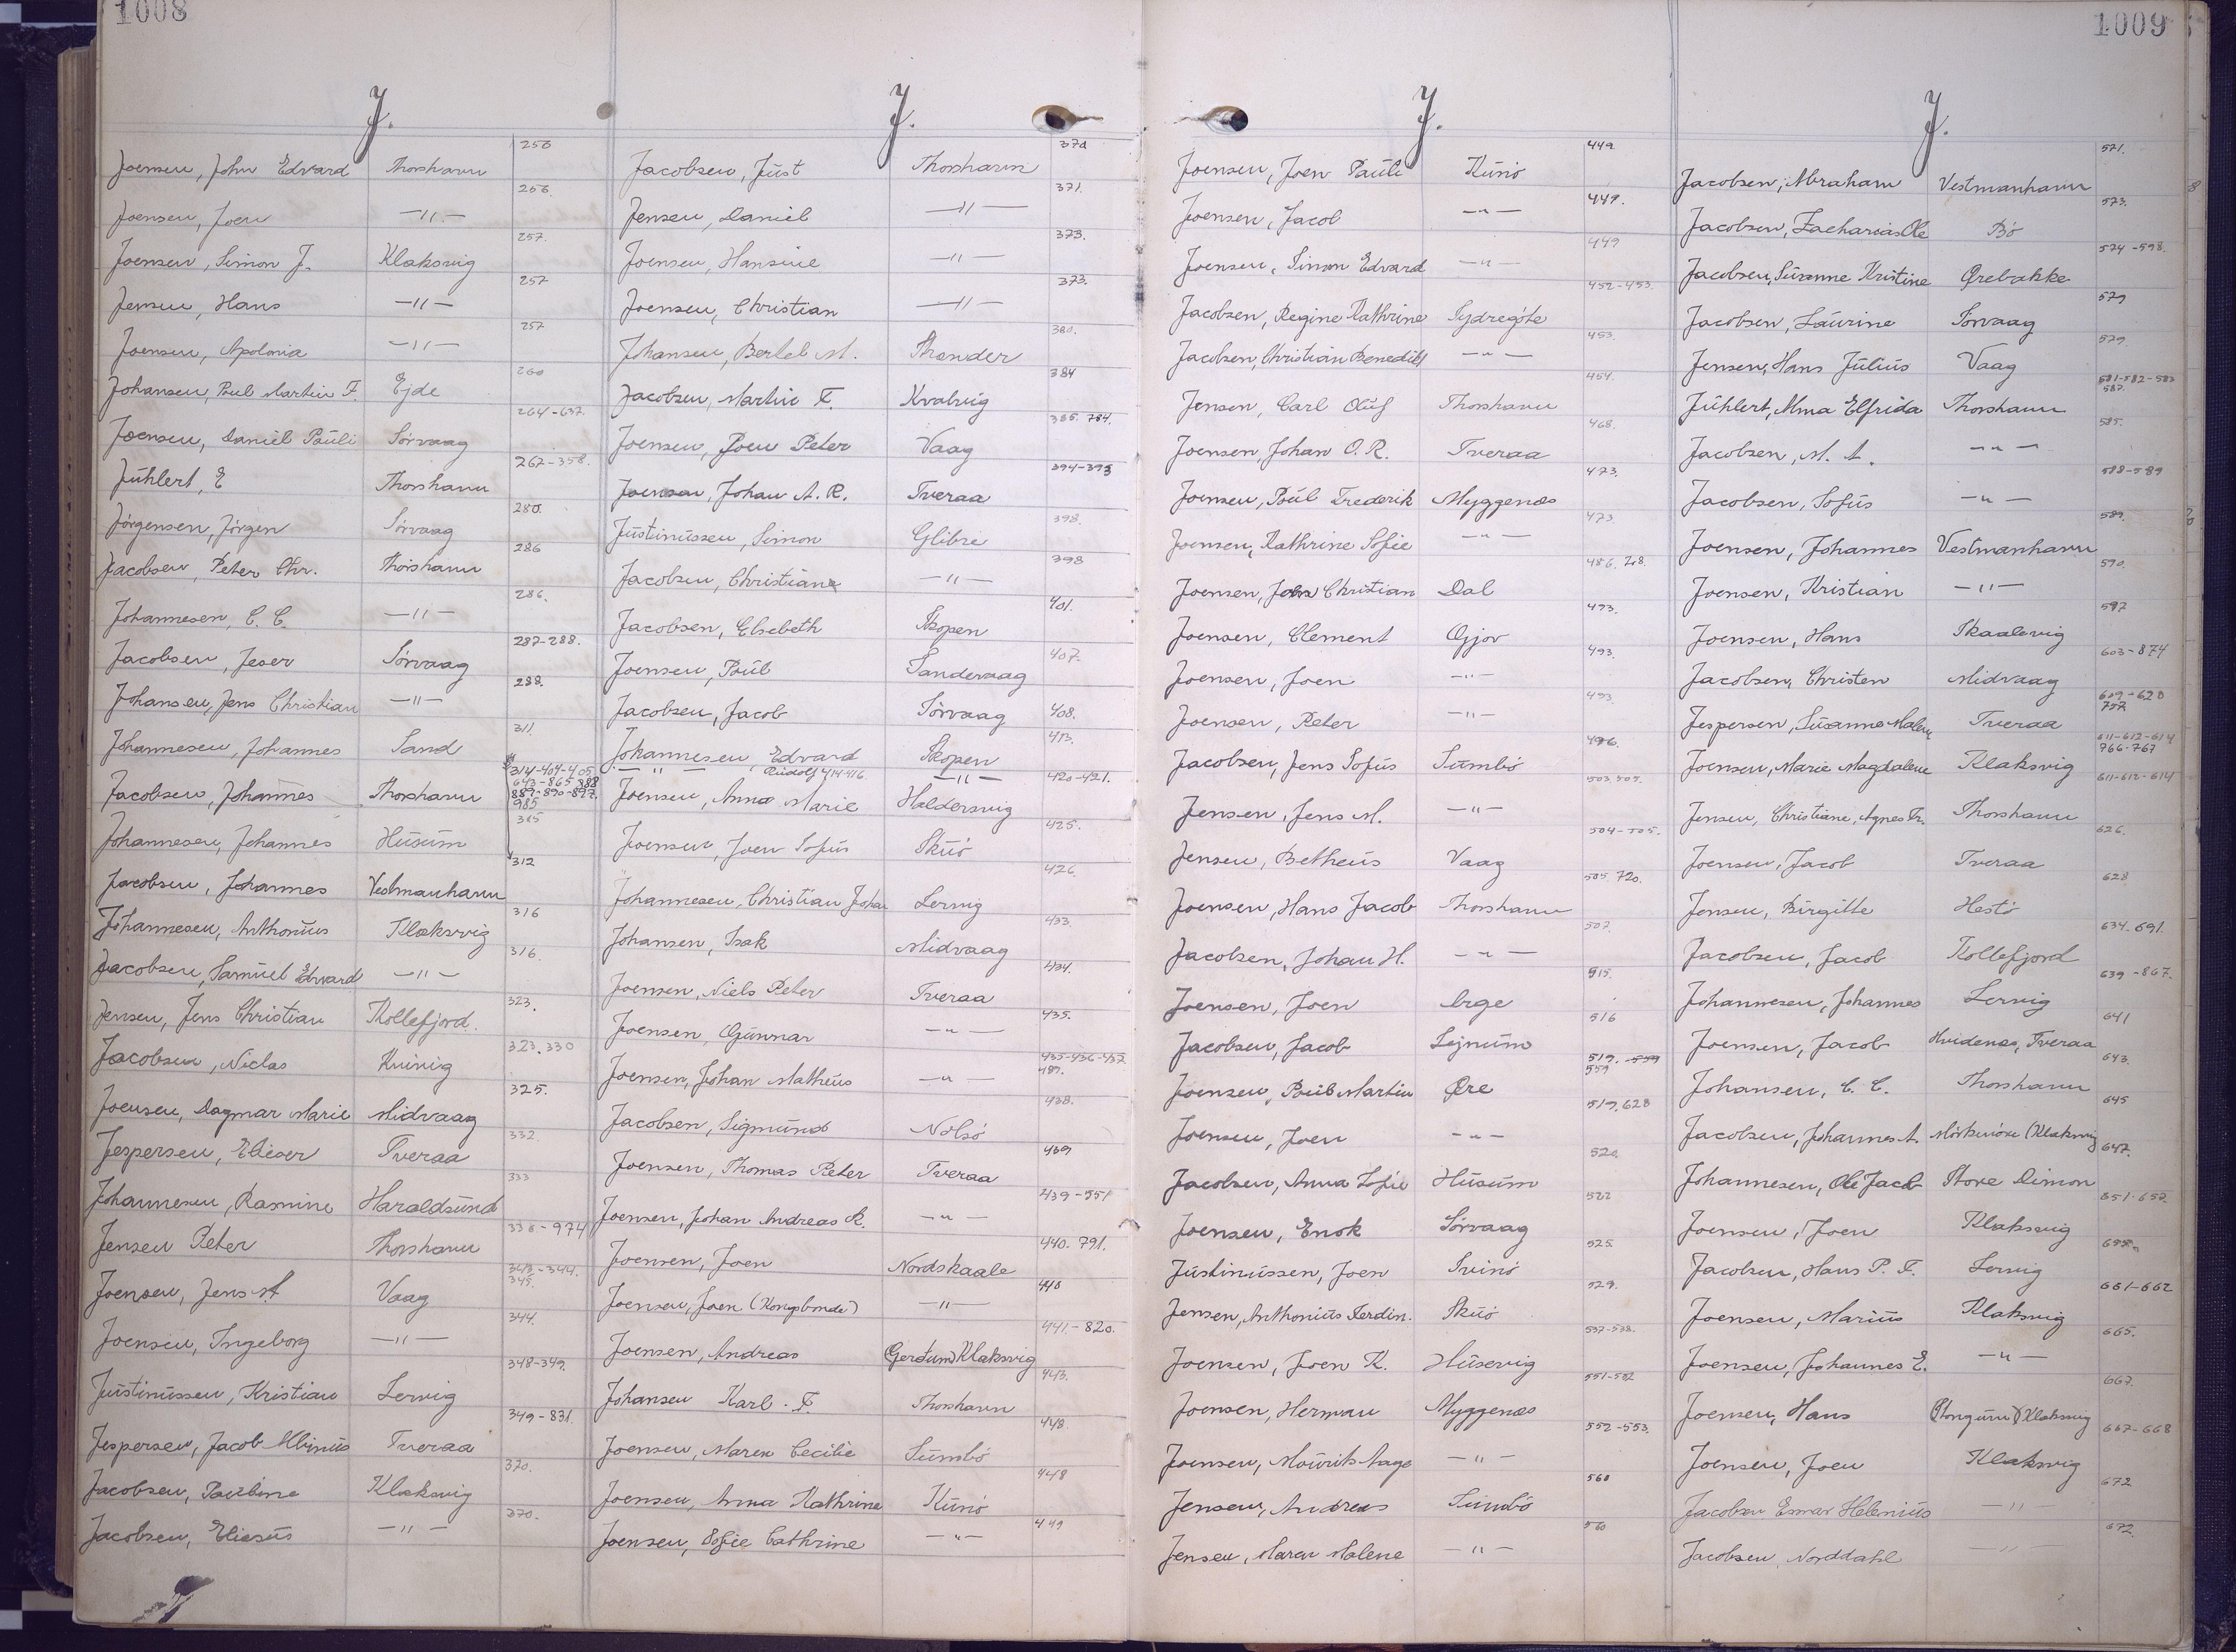 1008
J.
Joensen, John Edvard Thorshavn 250
Joensen, Joen —〃— 256
Joensen, Simon J. Klaksvig 257.
Jensen, Hans —〃— 257
Joensen, Apolonia —〃— 257
Johansen, Poul Martin F. Ejde 260
Joensen, Daniel Pauli Sörvaag 264-637.
Jühlert, E Thorshavn 267-358.
Jörgensen, Jörgen Sörvaag 280.
Jacobsen, Peter Chr. Thorshavn 286
Johannesen, C. C. —〃— 286.
Jacobsen, Jeser Sörvaag 287-288.
Johansen, Jens Christian —〃— 288.
Johannesen, Johannes Sand 311.
Jacobsen, Johannes Thorshavn 314-404-405 643-865 888 889-890-897. 985
Johannesen, Johannes Húsum 315
Jacobsen, Johannes Vestmanhavn 312
Johannesen, Anthonius Klaksvig 316
Jacobsen, Samuel Edvard —〃— 316.
Jensen, Jens Christian Kollefjord. 323.
Jacobsen, Niclas Kvivig 323.330
Joensen, Dagmar Marie Midvaag 325.
Jespersen, Elieser Tveraa 332.
Johannesen, Rasmine Haraldsund 333
Jensen Peter Thorshavn 338-974
Joensen, Jens A Vaag 343-344. 345.
Joensen, Ingeborg —〃— 344.
Justinussen, Kristian Lervig 348-349.
Jespersen, Jacob Albinus Tveraa 349-831.
Jacobsen, Pauline Klaksvig 370.
Jacobsen, Eliesus —〃— 370.
J.
Jacobsen, Just Thorshavn 370
Jensen, Daniel —〃— 371.
Joensen, Hansine —〃— 373.
Joensen, Christian —〃— 373.
Johansen, Bertel M. Strander 380.
Jacobsen, Martin F. Kvalvig 384
Joensen, Joen Peter Vaag 385. 784.
Joensen, Johan A. R. Tveraa 394-395
Justinussen, Simon Glibre 398.
Jacobsen, Christiane —〃— 398
Jacobsen, Elsebeth Skopen 401.
Joensen, Poul Sandevaag 407.
Jacobsen, Jacob Sörvaag 408.
Johannesen, Edvard Skopen 413.
— 〃 — Rudolf 414 416. —〃—
Joensen, Anna Marie Haldersvig 420-421.
Joensen, Joen Sofus Skuö 425.
Johannesen, Christian Johan Lervig 426.
Johansen, Isak Midvaag 433.
Joensen, Niels Peter Tveraa 434.
Joensen, Gunnar —〃— 435.
Joensen, Johan Matheus —〃— 435-436-437. 489.
Jacobsen, Sigmund Nolsö 438.
Joensen, Thomas Peter Tveraa 439
Joensen, Johan Andreas R. —〃— 439-551
Joensen, Joen Nordskaale 440. 791.
Joensen, Joen (Kongsbonde) —〃— 440
Joensen, Andreas (Gerdum) Klaksvig 441.-820.
Johansen Karl. F. Thorshavn 443.
Joensen, Maren Cecilie Sumbö 448.
Joensen, Anna Kathrine Kunö 448
Joensen, Sofie Cathrine —〃— 449
1009
J.
Joensen, Joen Pauli Kunö 449
Joensen, Jacob —〃— 449.
Joensen, Simon Edvard —〃— 449
Jacobsen, Regine Kathrine Sydregöte 452-453.
Jacobsen, Christian Benedikt —〃— 453.
Jensen, Carl Oluf Thorshavn 454.
Joensen, Johan O. R. Tveraa 468.
Joensen, Poul Frederik Myggenæs 473.
Joensen, Kathrine Sofie —〃— 473.
Joensen, John Christian Dal 486. 28.
Joensen, Clement Gjov 493.
Joensen, Joen —〃— 493.
Joensen, Peter —〃— 493
Jacobsen, Jens Sofus Sumbö 496.
Jensen, Jens M. —〃— 503.505.
Jensen, Betheus Vaag 504-505.
Joensen, Hans Jacob Thorshavn 505. 720.
Jacobsen, Johan H. —〃— 507.
Joensen, Joen Arge 515.
Jacobsen, Jacob Lejnum 516
Joensen, Poul Martin Öre 519.-559 559
Joensen, Joen —〃— 519.628
Jacobsen, Anna Sofie Húsum 520.
Joensen, Enok Sörvaag 522
Justinussen, Joen Svinö 525.
Jensen, Anthonius Ferdin. Skuö 529.
Joensen, Joen K. Húsevig 537-538.
Joensen, Herman Myggenæs 551-552
Joensen, Mourits Aage —〃— 552-553.
Jensen, Andreas Sumbö 560
Jensen, Maren Malene —〃— 560
J.
Jacobsen, Abraham Vestmanhavn 571.
Jacobsen, Zacharias Ole Bö 573.
Jacobsen, Susanne Kristine Örebakke 574-598.
Jacobsen, Laurine Sörvaag 579
Jensen, Hans Julius Vaag 579.
Jühlert, Alma Elfrida Thorshavn 581-582-583 587.
Jacobsen, M. A. —〃— 585.
Jacobsen, Sofus —〃— 588-589
Joensen, Johannes Vestmanhavn 589.
Joensen, Kristian —〃— 590.
Joensen, Hans Skaalevig 597
Jacobsen, Christen Midvaag 603-874
Jespersen, Susanne Malene Tveraa 609-620 757.
Joensen, Marie Magdalene Klaksvig 611-612-614 766-767
Jensen, Christiane, Agnes Fr. Thorshavn 611-612-614
Joensen, Jacob Tveraa 626.
Jensen, Birgitte Hestö 628
Jacobsen, Jacob Kollefjord 634-691.
Johannesen, Johannes Lervig 639-867.
Joensen, Jacob Hvidenæs, Tveraa 641
Johansen, C. C. Thorshavn 643.
Jacobsen, Johannes A. Mörknöre (Klaksvig 645
Johannesen, Ole Jacob Store Dimon 647.
Joensen, Joen Klaksvig 651-652.
Jacobsen, Hans P. F. Lervig 655.
Joensen, Marius Klaksvig 661-662
Joensen, Johannes E. —〃— 665.
Joensen, Hans Klaksvig 667.
Joensen, Joen Klaksvig 667-668
Jacobsen Esmar Helenius —〃— 672
Jacobsen, Norddahl —〃— 672.